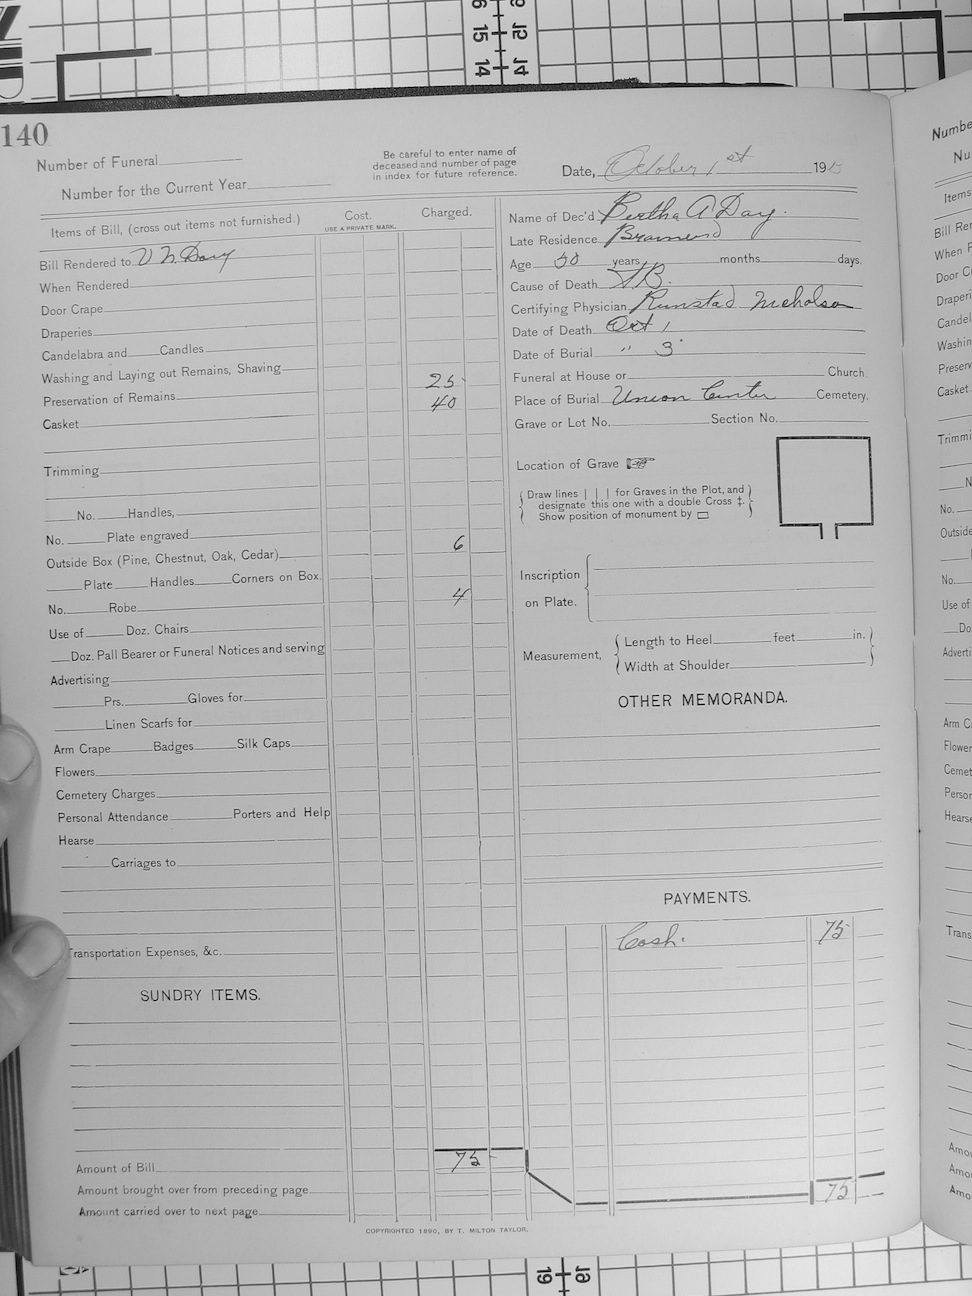 140
Number of Funeral
Number for the Current Year
Be careful to enter name of
deceased and number of page
in index for future reference.
Date, October 1st 1915
Items of Bill, (cross out items not furnished.)
Cost.
USE A PRIVATE MARK.
Charged.
Bill Rendered to Day
When Rendered
Door Crape
Draperies
Candelabra and Candles
Washing and Laying out Remains, Shaving
Preservation of Remains 25
Casket 40
Trimming
No. Handles,
No. Plate engraved
Outside Box (Pine, Chestnut, Oak, Cedar) 6
Plate Handles Corners on Box.
No. Robe 4
Use of Doz. Chairs
Doz. Pall Bearer or Funeral Notices and serving
Advertising
Prs. Gloves for
Linen Scarfs for
Arm Crape Badges Silk Caps
Flowers
Cemetery Charges
Personal Attendance Porters and Help
Hearse
Carriages to
Transportation Expenses, &c.
SUNDRY ITEMS.
Amount of Bill 75
Amount brought over from preceding page
Amount carried over to next page
Name of Dec'd Bertha A Day.
Late Residence Brainerd
Age years months days.
Cause of Death TB.
Certifying Physician Runstad Nicholson
Date of Death Oct 1
Date of Burial " 3
Funeral at House or Church.
Place of Burial Union Center Cemetery.
Grave or Lot No. Section No.
Location of Grave
Draw lines | | | for Graves in the Plot, and
designate this one with a double Cross ‡.
Show position of monument by
Inscription
on Plate.
Measurement,
Length to Heel feet in.
Width at Shoulder
OTHER MEMORANDA.
PAYMENTS.
Cash. 75
75
COPYRIGHTED 1890, BY T. MILTON TAYLOR.